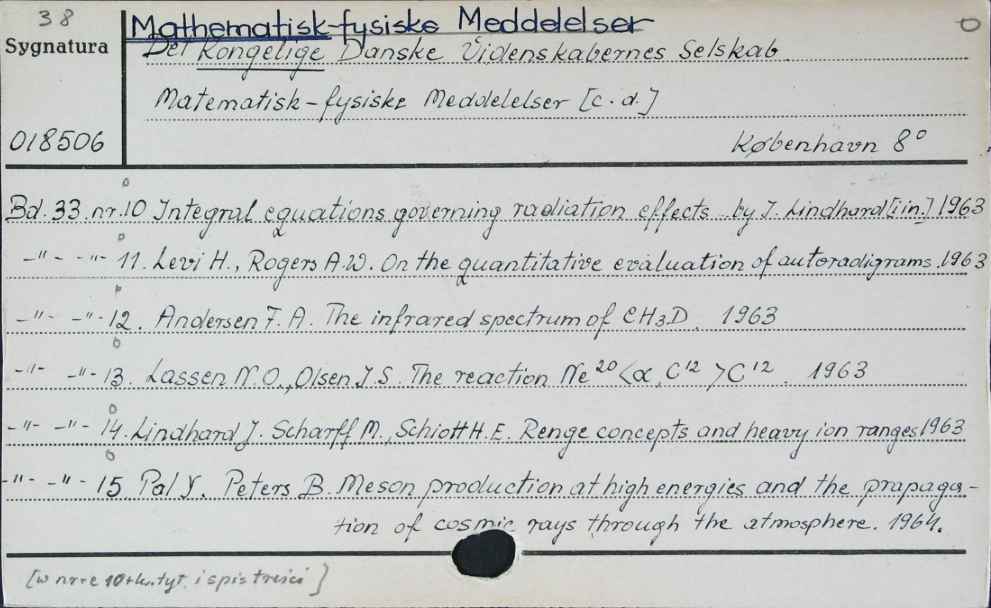 38
Sygnatura
018506
Mathematisk-fysiske Meddelelser
Det Kongelige Danske Videnskabernes Selskab
Matematisk-fysiske Meddelelser [c.d.]
København 8°
Bd. 33 nr. 10 Integral equations governing radiation effects by J. Lindhard [i in.] 1963
-"- -"- 11. Levi H., Rogers A.W. On the quantitative evaluation of autoradigrams. 1963
-"- -"- 12. Andersen F. A. The infrared spectrum of CH3D. 1963
-"- -"- 13. Lassen N.O., Olsen J.S. The reaction Ne 20 <α, C12 > C12. 1963
-"- -"- 14. Lindhard J. Scharff M., Schiott H.E. Renge concepts and heavy ion ranges 1963
-"- -"- 15 Pal Y. Peters B. Meson production at high energies and the prapaga-
tion of cosmic rays through the atmosphere. 1964.
[w nrze 10 + k. tyt. i spis treści]